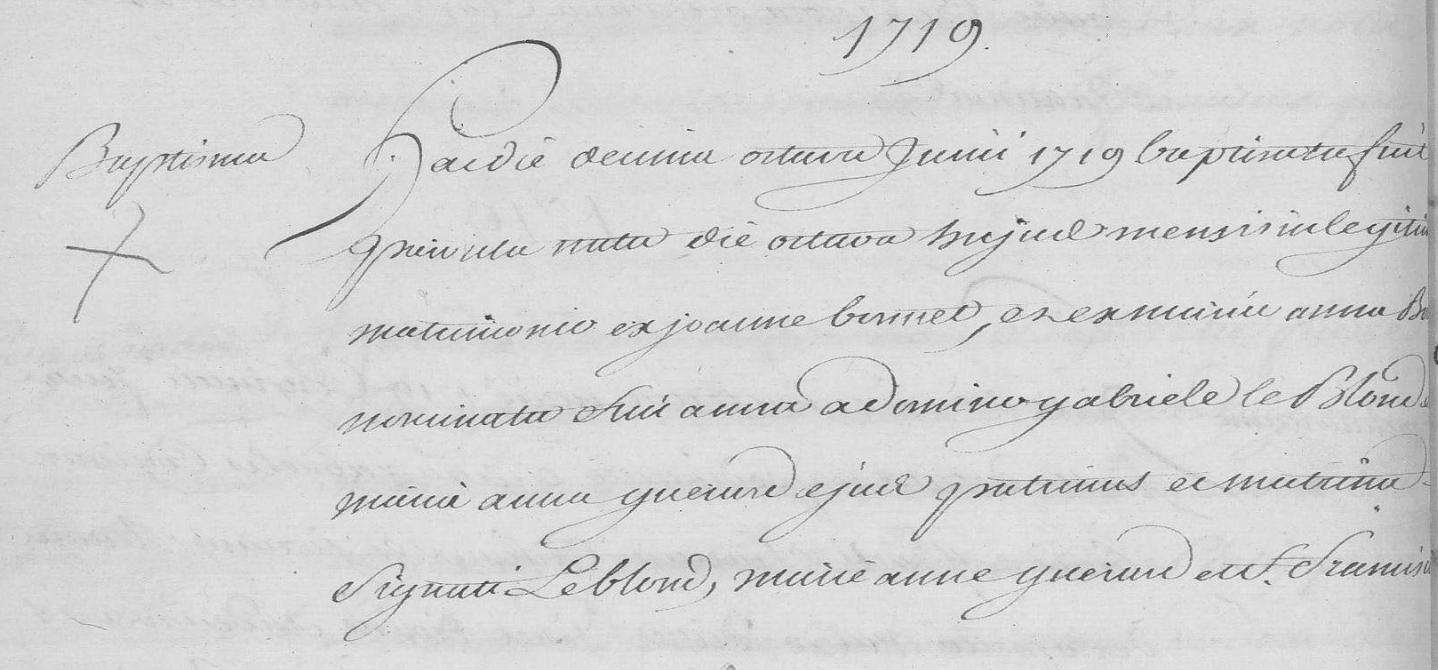 1719.
Baptisma
hac die decima octava Junii 1719 baptisata fuit
puerula nata die octava hujus mensis in legitim
matrimonio ex joanne bonnet, et ex maria anna
nominata fuit anna a domino gabriele le Blond
maria anna guerard ejus patrinus et matrina
Signati Leblond, marie anne guerard et f. Francis